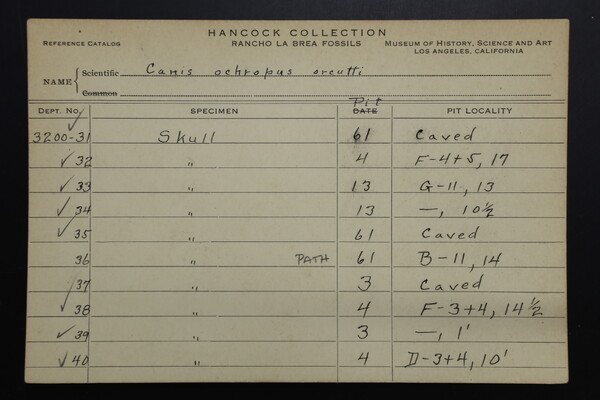 HANCOCK COLLECTION
REFERENCE CATALOG RANCHO LA BREA FOSSILS MUSEUM OF HISTORY, SCIENCE AND ART
LOS ANGELES, CALIFORNIA
NAME { Scientific Canis ochropus orcutti
Common
Pit
DEPT. NO. SPECIMEN DATE PIT LOCALITY
✓ 3200-31 Skull 61 Caved
✓ 32 " 4 F-4+5, 17
✓ 33 " 13 G-11, 13
✓ 34 " 13 —, 10½
✓ 35 " 61 Caved
36 " PATH 61 B-11, 14
37 " 3 Caved
✓ 38 " 4 F-3+4, 14½
✓ 39 " 3 —, 1'
✓ 40 " 4 D-3+4, 10'